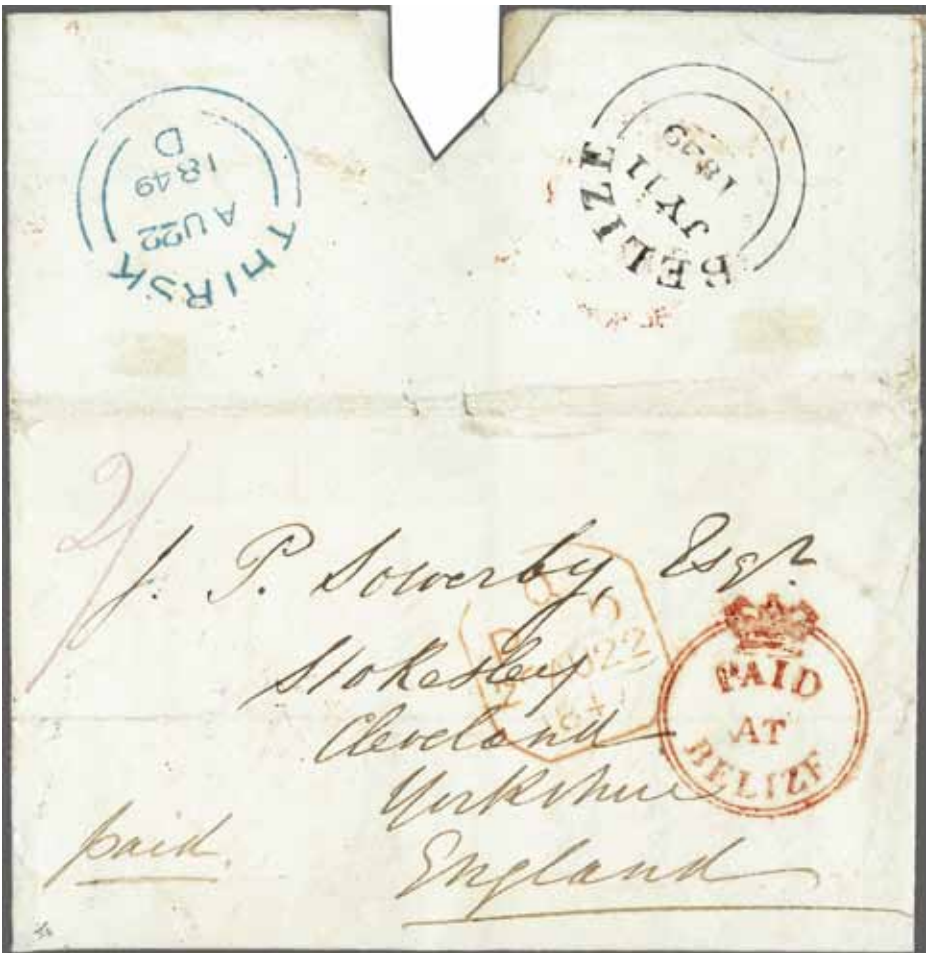 THIRSK
AU22
1849
D
BELIZE
JY11
1849
2/
J. P. Sowerby, Esqr.
Stokesley
Cleveland
Yorkshire
England
paid
PAID
AT
BELIZE
AU22